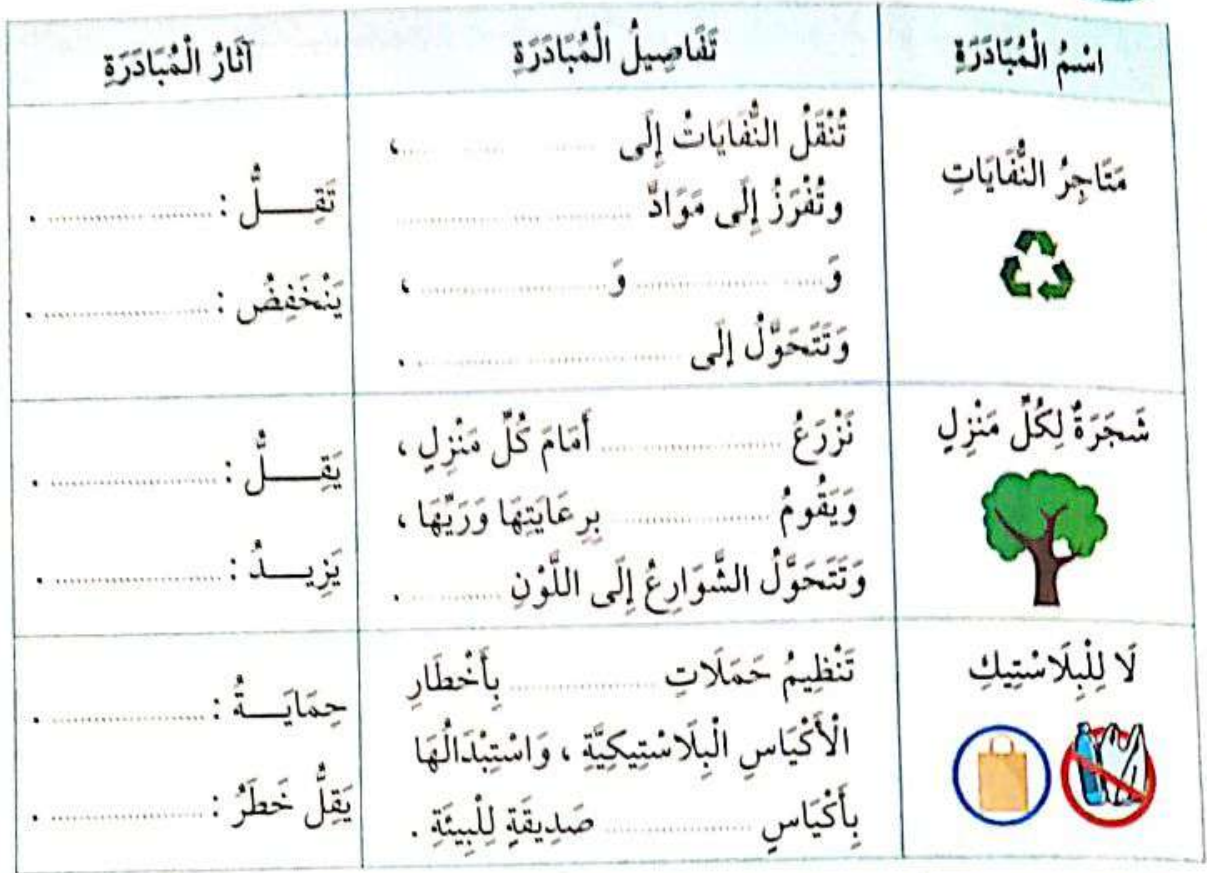 اسْمُ الْمُبَادَرَةِ
تَفَاصِيلُ الْمُبَادَرَةِ
آثَارُ الْمُبَادَرَةِ
مَتَاجِرُ النُّفَايَاتِ
تُنْقَلُ النُّفَايَاتُ إِلَى .................... ،
وتُفْرَزُ إِلَى مَوَادَّ ....................
وَ.................... وَ .................... ،
وَتَتَحَوَّلُ إِلَى .................... .
تَقِـــــلُّ : .................... .
يَنْخَفِضُ : .................... .
شَجَرَةٌ لِكُلِّ مَنْزِلٍ
نَزْرَعُ .................... أَمَامَ كُلِّ مَنْزِلٍ ،
وَيَقُومُ .................... بِرِعَايَتِهَا وَرَيِّهَا ،
وَتَتَحَوَّلُ الشَّوَارِعُ إِلَى اللَّوْنِ .......... .
يَقِـــــلُّ : .................... .
يَزِيـــــدُ : .................... .
لَا لِلْبِلَاسْتِيكِ
تَنْظِيمُ حَمَلَاتِ .................... بِأَخْطَارِ
الْأَكْيَاسِ الْبِلَاسْتِيكِيَّةِ ، وَاسْتِبْدَالُهَا
بِأَكْيَاسٍ .................... صَدِيقَةٍ لِلْبِيئَةِ .
حِمَايَـــــةُ : .................... .
يَقِلُّ خَطَرُ : .................... .